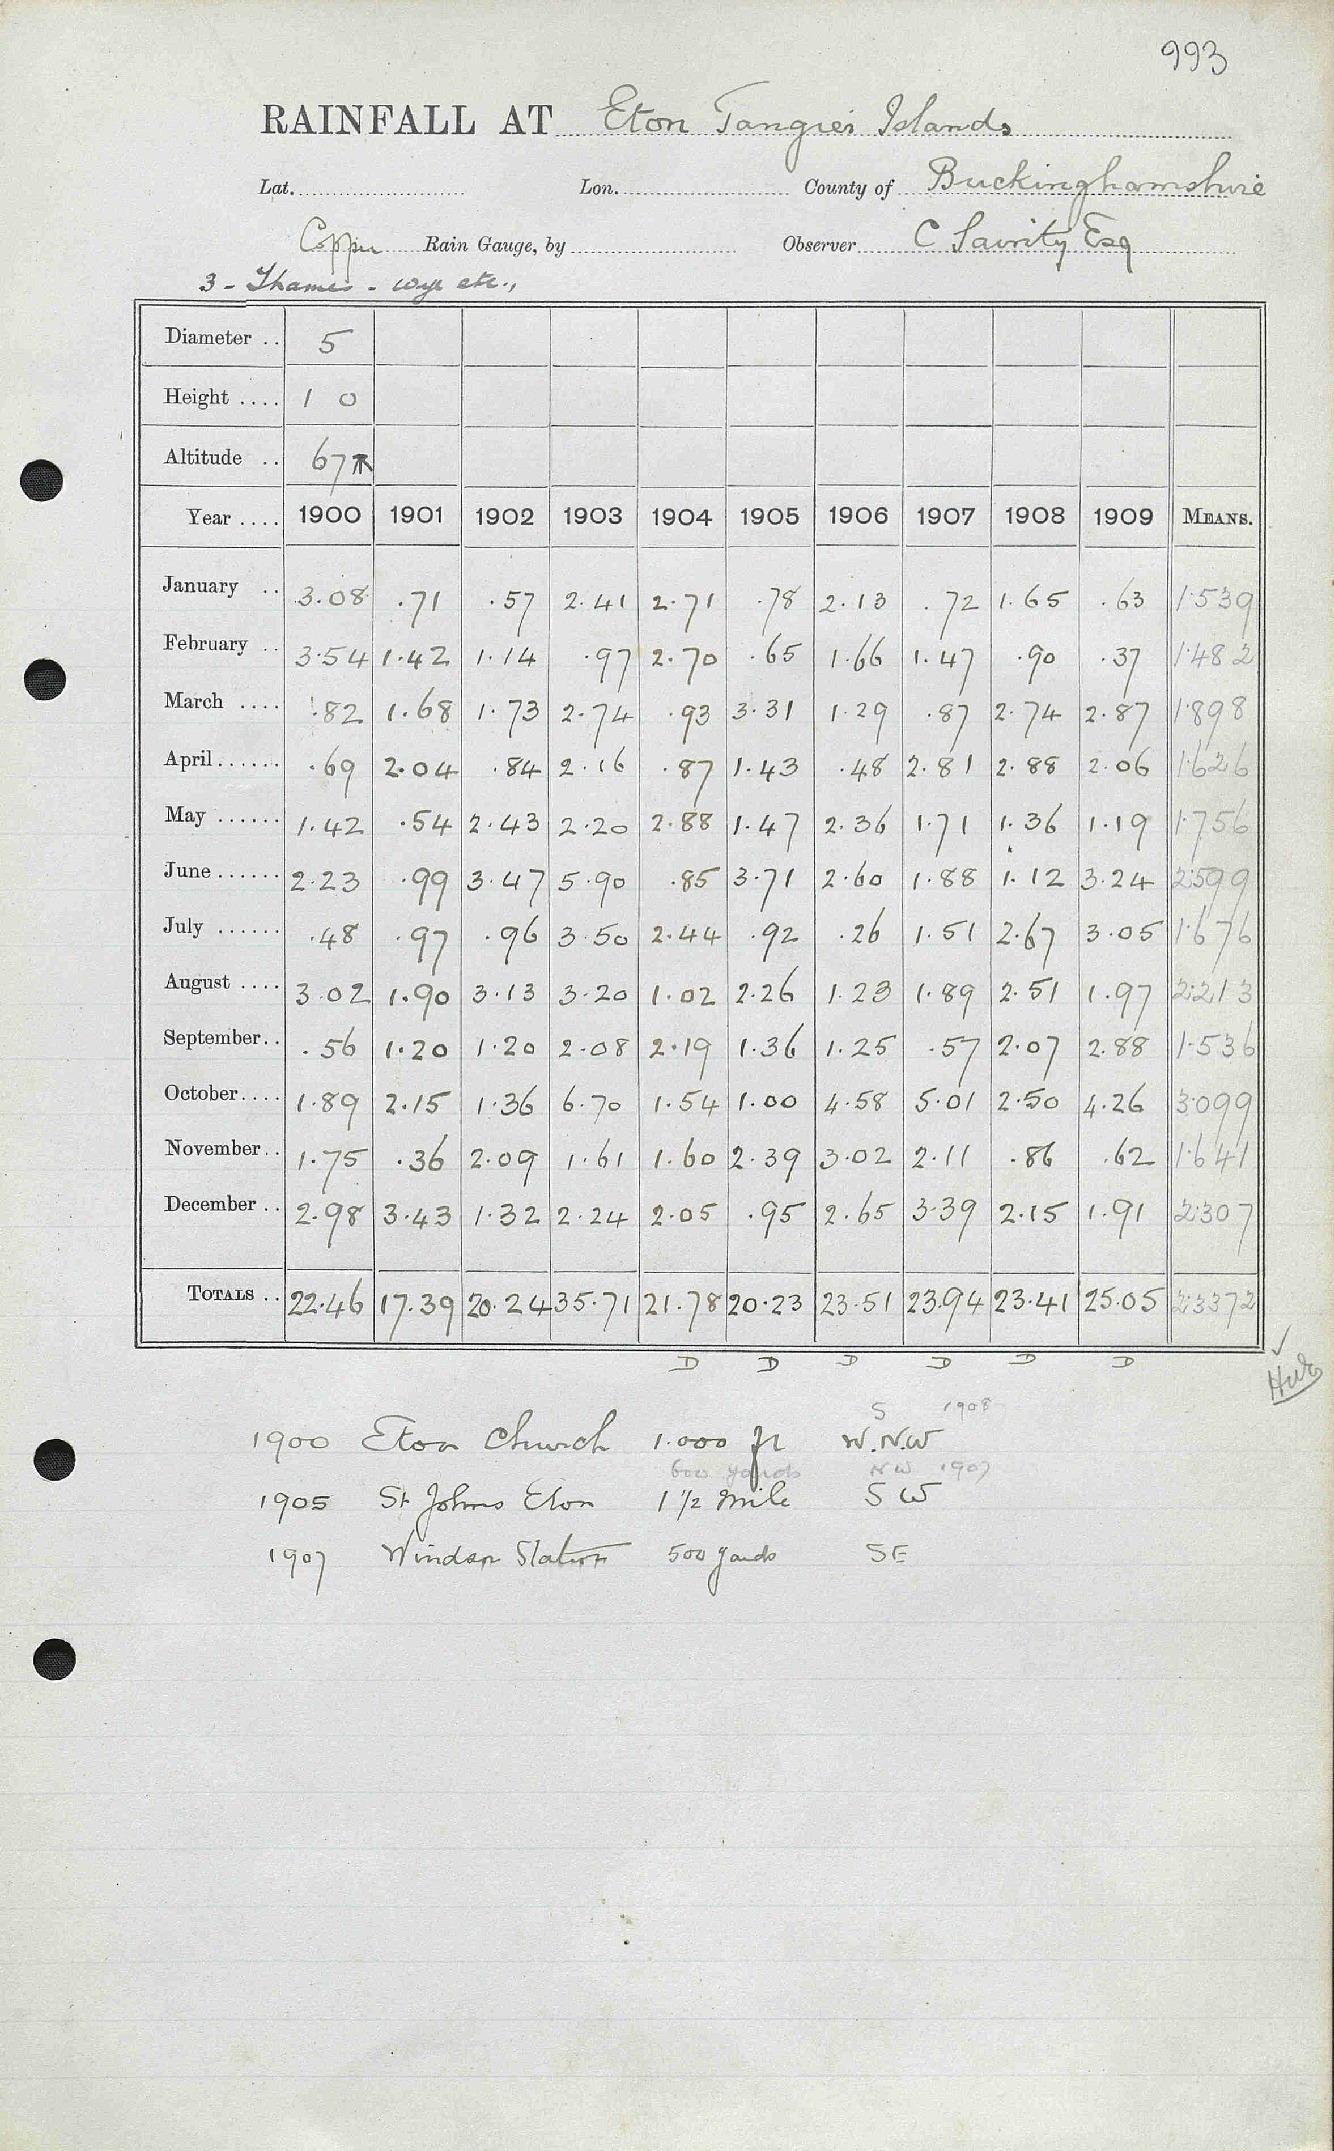 993
RAINFALL AT Eton Tangier Islands
Lat. Lon. County of Buckinghamshire
Copper Rain Gauge, by Observer C Esq
3 - Thames - Wye etc.,
Diameter .. 5
Height .... 1 0
Altitude .. 67
Year .... 1900 1901 1902 1903 1904 1905 1906 1907 1908 1909 MEANS.
January .. 3.08 .71 .57 2.41 2.71 .78 2.13 .72 1.65 .63 1.539
February .. 3.54 1.42 1.14 .97 2.70 .65 1.66 1.47 .90 .37 1.482
March .... .82 1.68 1.73 2.74 .93 3.31 1.29 .87 2.74 2.87 1.898
April...... .69 2.04 .84 2.16 .87 1.43 .48 2.81 2.88 2.06 1.626
May ...... 1.42 .54 2.43 2.20 2.88 1.47 2.36 1.71 1.36 1.19 1.756
June ...... 2.23 .99 3.47 5.90 .85 3.71 2.60 1.88 1.12 3.24 2.599
July ...... .48 .97 .96 3.50 2.44 .92 .26 1.51 2.67 3.05 1.676
August .... 3.02 1.90 3.13 3.20 1.02 2.26 1.23 1.89 2.51 1.97 2.213
September.. .56 1.20 1.20 2.08 2.19 1.36 1.25 .57 2.07 2.88 1.536
October.... 1.89 2.15 1.36 6.70 1.54 1.00 4.58 5.01 2.50 4.26 3.099
November.. 1.75 .36 2.09 1.61 1.60 2.39 3.02 2.11 .86 .62 1.641
December .. 2.98 3.43 1.32 2.24 2.05 .95 2.65 3.39 2.15 1.91 2.307
TOTALS .. 22.46 17.39 20.24 35.71 21.78 20.23 23.51 23.94 23.41 25.05 23.372
D D D D D D
S 1908
1900 Eton Church 1.000 ft W.N.W
600 yards NW 1907
1905 St Johns Eton 1 1/2 mile S W
1907 Windsor Station 500 yards SE